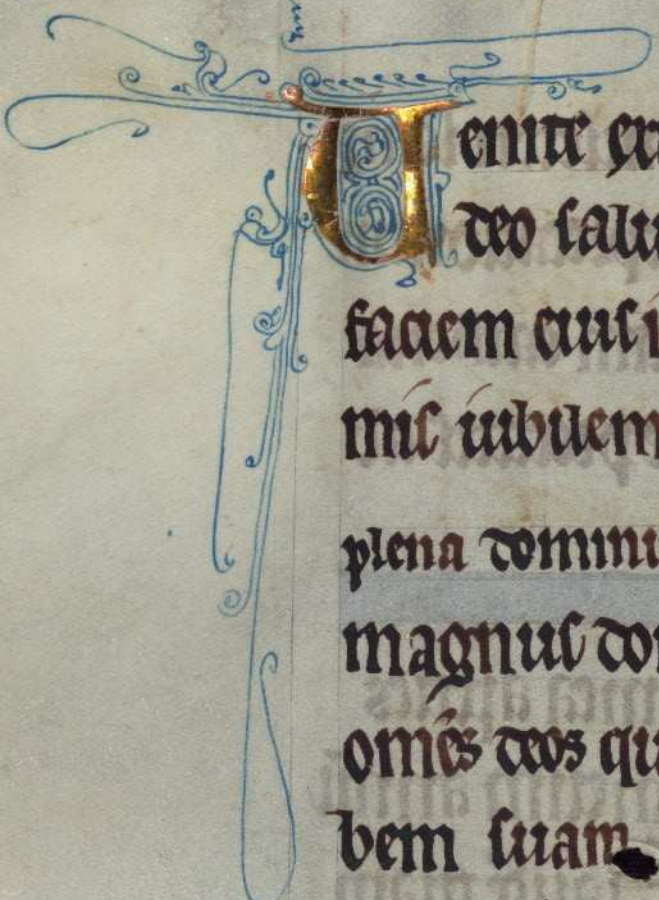 Uenite ex
deo salu
faciem eius i
mis iubilem
plena dominu
magnus do
omes deos qu
bem suam